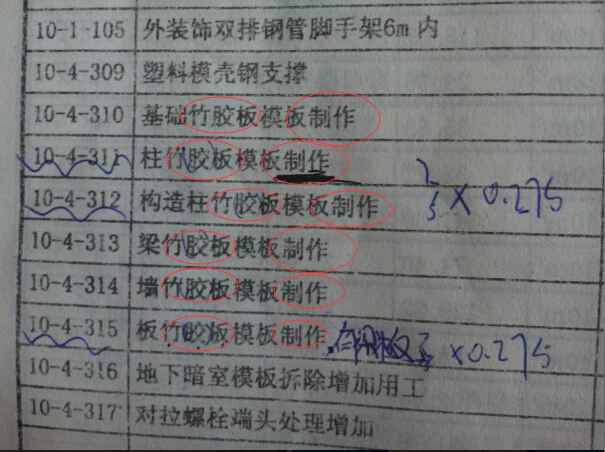 10-1-105 外装饰双排钢管脚手架6m内
10-4-309 塑料模壳钢支撑
10-4-310 基础竹胶板模板制作
10-4-311 柱竹胶板模板制作
10-4-312 构造柱竹胶板模板制作 × 0.275
10-4-313 梁竹胶板模板制作
10-4-314 墙竹胶板模板制作
10-4-315 板竹胶板模板制作 ×0.275
10-4-316 地下暗室模板拆除增加用工
10-4-317 对拉螺栓端头处理增加